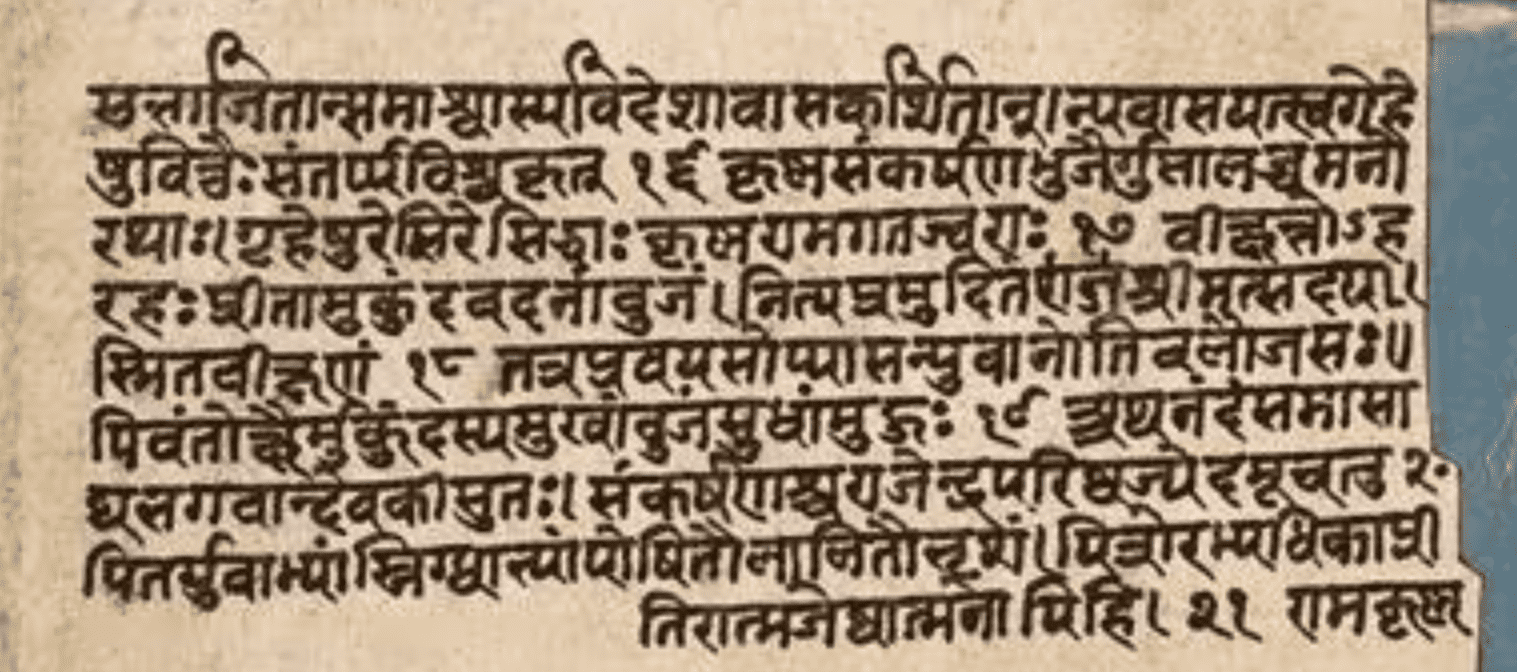 सत्ताजितान्समाश्वास्यविदेशावासकर्शितान्।न्यवासयत्स्वगेहे
षुवित्तैःसंतर्प्यविश्वकृत् १६ कृष्मसंकर्षणभुजैर्गुप्तालब्धमनो
रथाः।गृहेषुरेमिरेसिद्धाःकृष्मरामगतज्वराः १७ वीक्षंतोऽह
रहःप्रीतामुकुंदवदनांवुजं।नित्यप्रमुदितंश्रीमत्सदया।
स्मितवीक्षणं १८ तत्रप्रवयसोप्यासन्युवानोतिवलौजसः॥
पिवंतोक्षैर्मुकुंदस्यमुखांवुजसुधांमुहुः १९ अथनंदंसमासा
द्यभगवान्देवकीसुतः।संकर्षणश्चराजेन्द्रपरिष्वज्येदमूचतु २०
पितर्युवाभ्यांस्निग्धाभ्यांपोषितौलालितौभृशं।पित्रोरभ्यधिकाप्री
तिरात्मजेष्वात्मनोपिहि। २१ रामकृष्म